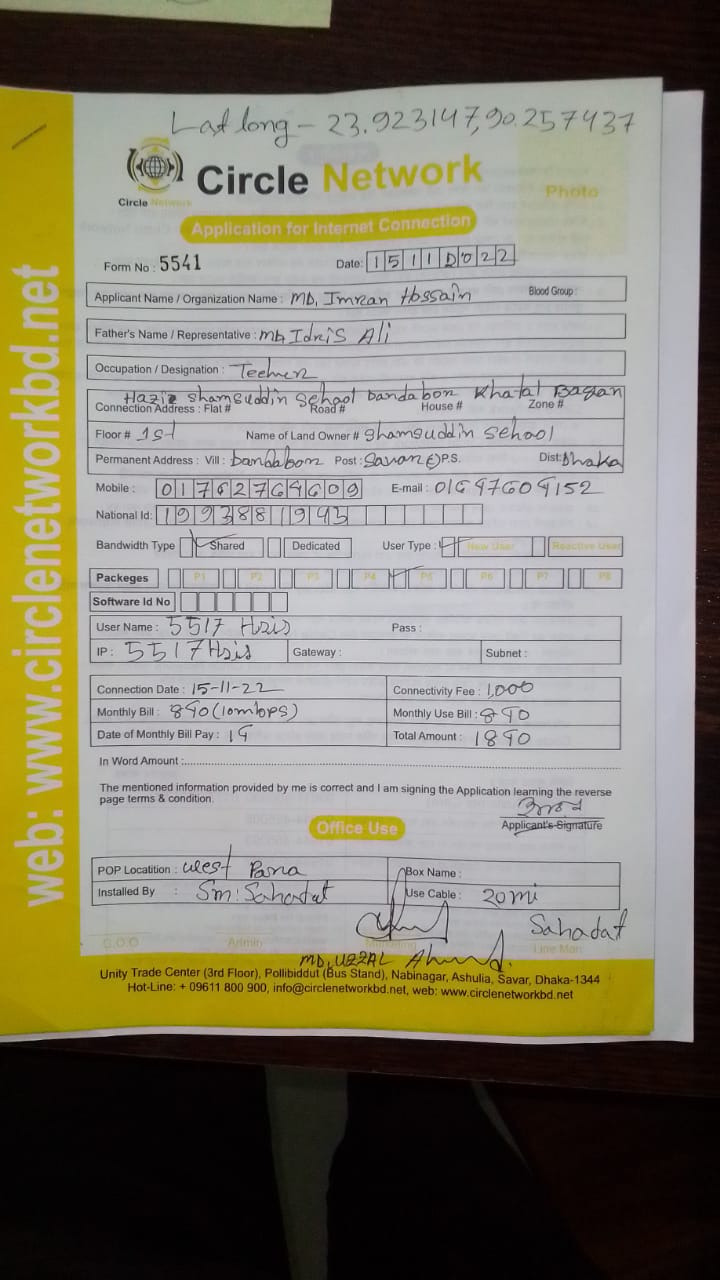 Lat long - 23.923147,90.257437
Circle Network
Circle Network
Photo
Application for Internet Connection
Form No : 5541 Date: 15112022
Applicant Name / Organization Name : MD, Imran Hossain Blood Group :
Father's Name / Representative : Md, Idris Ali
Occupation / Designation :
Hazir Shamsuddin School bandabon Khatal Bagan
Connection Address : Flat # Road # House # Zone #
Floor # 1st Name of Land Owner # Shamsuddin School
Permanent Address : Vill : bandabon Post : Savar P.S. Dist: Dhaka
Mobile : 01762764609 E-mail : 01647604152
National Id: 1993881943
Bandwidth Type Shared Dedicated User Type : New User Reactive User
Packeges P1 P2 P3 P4 P5 P6 P7 P8
Software Id No
User Name : 5517 Hsis Pass :
IP : 5517Hsis Gateway : Subnet :
Connection Date : 15-11-22 Connectivity Fee : 1,000
Monthly Bill : 890 (10mbps) Monthly Use Bill : 890
Date of Monthly Bill Pay : 19 Total Amount : 1890
In Word Amount :
The mentioned information provided by me is correct and I am signing the Application learning the reverse
page terms & condition.
Applicant's Signature
Office Use
POP Locatition : West Para Box Name :
Installed By : Sm: Sahadat Use Cable : 20mi
Sahadat
C.O.O Admin Marketing Line Man
MD, UZZAL Ahmed.
Unity Trade Center (3rd Floor), Pollibiddut (Bus Stand), Nabinagar, Ashulia, Savar, Dhaka-1344
Hot-Line: + 09611 800 900, info@circlenetworkbd.net, web: www.circlenetworkbd.net
web: www.circlenetworkbd.net